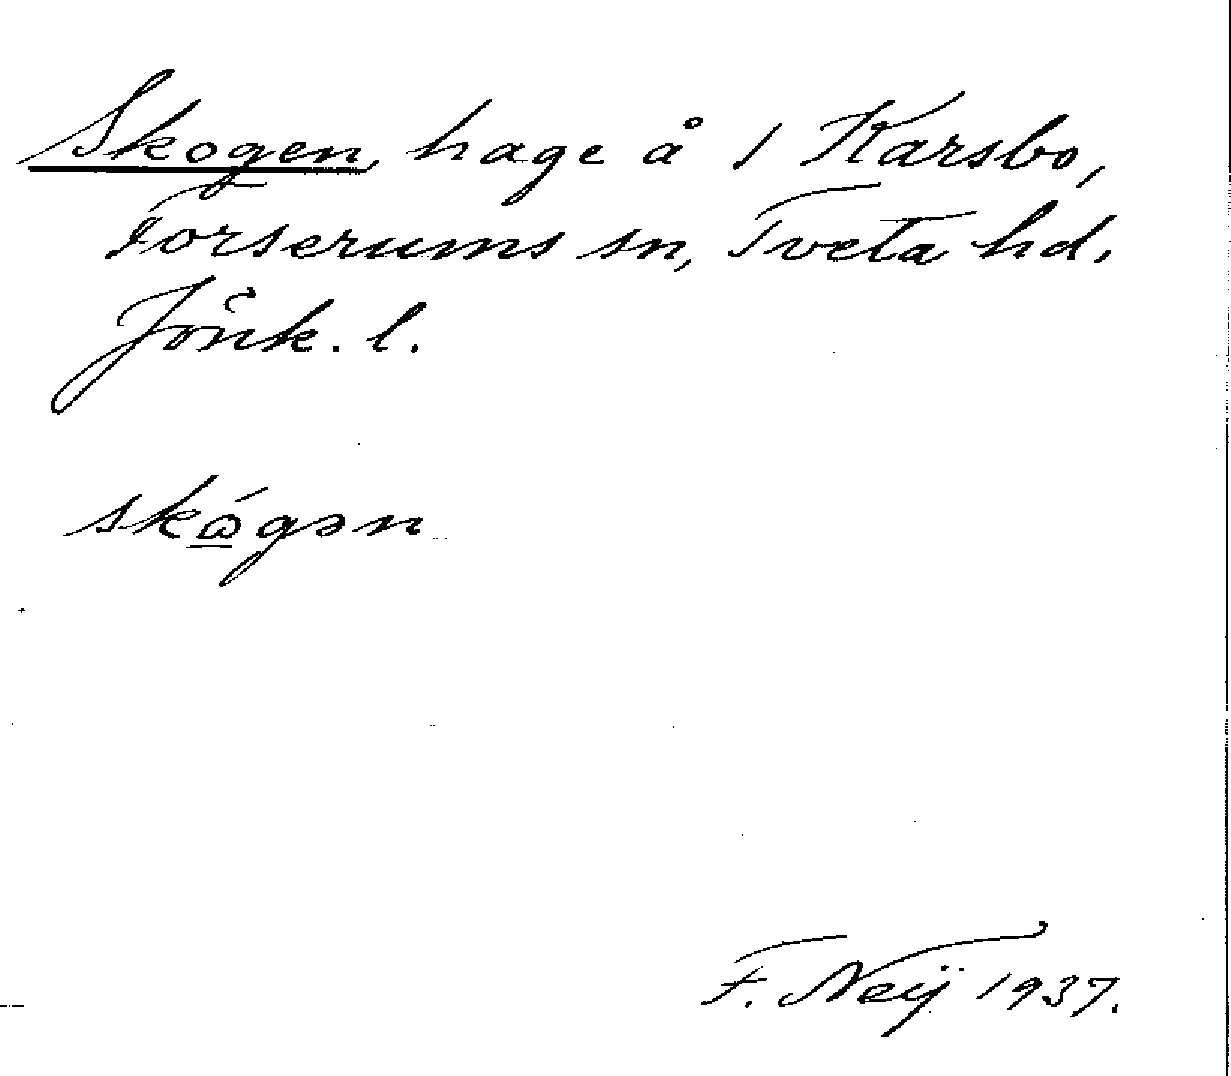 Skogen, hage å 1 Karsbo,
Forserums sn, Tveta hd.
Jönk. l.
skógən
F. Neij 1937.